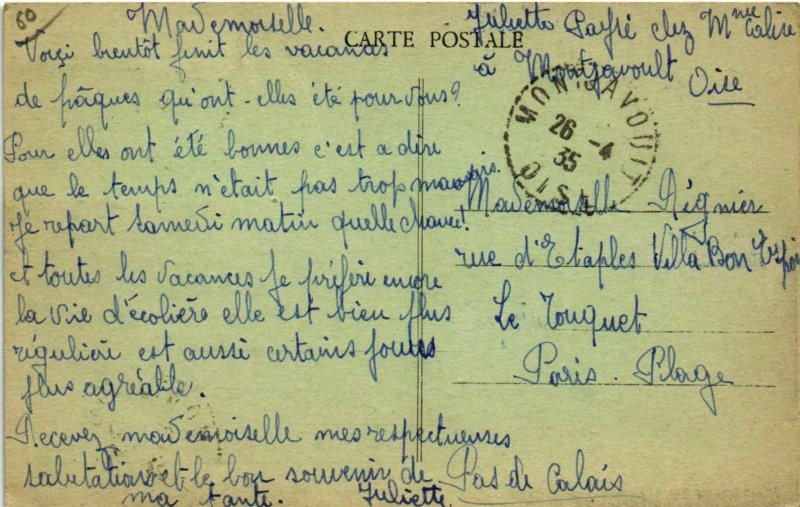 60
Mademoiselle.
CARTE POSTALE
Voiçi bientôt finit les vacances
de pâques qu'ont-elles été pour vous?
Pour elles ont été bonnes c'est a dire
que le temps n'était pas trop mauvais.
Je repart samedi matin quelle chance!
et toutes les vacances je préfère encore
la vie d'écolière elle est bien plus
régulière est aussi certains jours
plus agréable.
Recevez mademoiselle mes respectueuses
salutations et le bon souvenir de
ma tante. Juliette
Juliette chez Mme
à Montjavoult
Oise
MONTJAVOULT
26-4
35
OISE
Mademoiselle Régnier
rue d'Etaples Villa Bon Espoir
Le Touquet
Paris-Plage
Pas de Calais